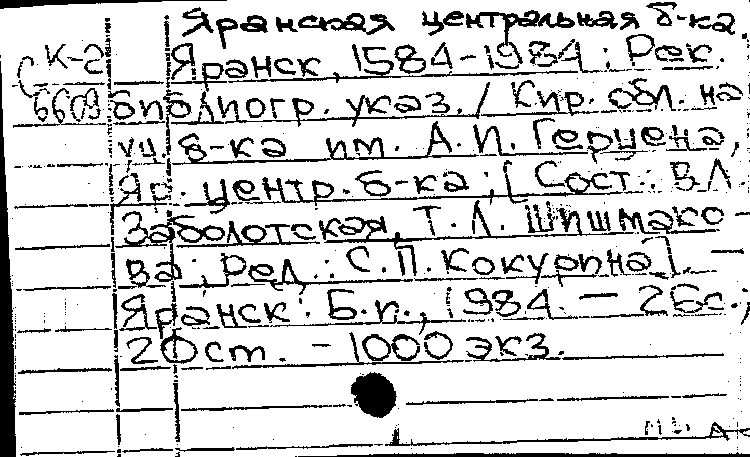 Яранская центральная б-ка.
К-2 Яранск, 1584-1984 : Рек.
6609 библиогр. указ. / Кир. обл. на
уч. б-ка им. А.И. Герцена,
Яр. центр. б-ка ; [Сост.: В.Л.
Заболотская, Т.Л. Шишмако-
ва ; Ред.: С.П. Кокурина]. —
Яранск : Б.и., 1984. — 26 с.;
20 см. - 1000 экз.